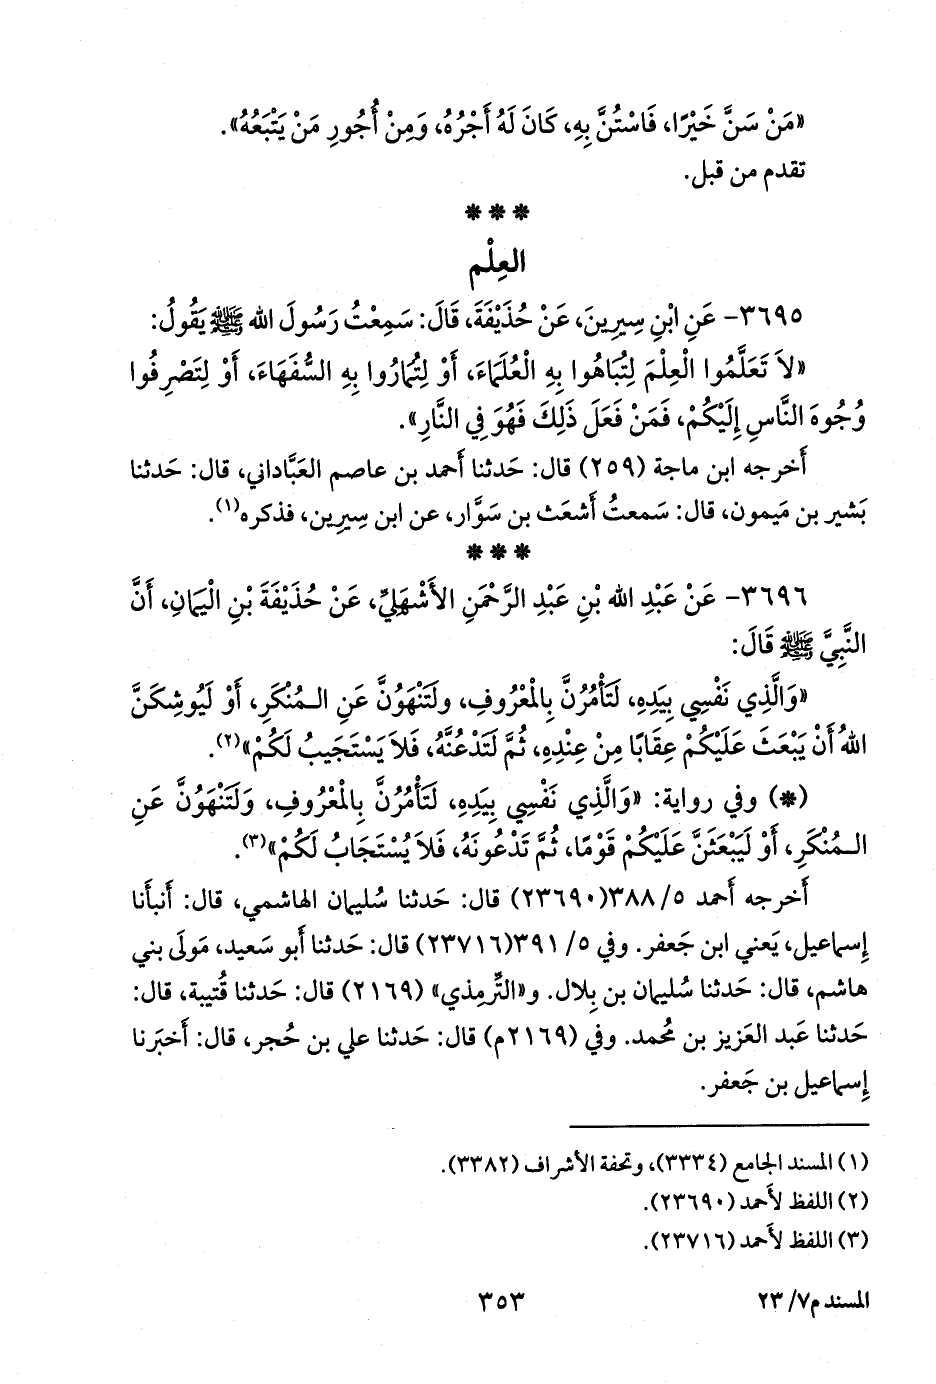 «مَنْ سَنَّ خَيْرًا، فَاسْتُنَّ بِهِ، كَانَ لَهُ أَجْرُهُ، وَمِنْ أُجُورِ مَنْ يَتْبَعُهُ».
تقدم من قبل.
* * *
العِلْم
٣٦٩٥- عَنِ ابْنِ سِيرِينَ، عَنْ حُذَيْفَةَ، قَالَ: سَمِعْتُ رَسُولَ الله ﷺ يَقُولُ:
«لاَ تَعَلَّمُوا الْعِلْمَ لِتُبَاهُوا بِهِ الْعُلَمَاءَ، أَوْ لِتُمَارُوا بِهِ السُّفَهَاءَ، أَوْ لِتَصْرِفُوا
وُجُوهَ النَّاسِ إِلَيْكُمْ، فَمَنْ فَعَلَ ذَلِكَ فَهُوَ فِي النَّارِ».
أَخرجه ابن ماجة (٢٥٩) قال: حَدثنا أَحمد بن عاصم العَبَّاداني، قال: حَدثنا
بَشير بن مَيمون، قال: سَمعتُ أَشعَث بن سَوَّار، عن ابن سِيرين، فذكره(١).
* * *
٣٦٩٦- عَنْ عَبْدِ الله بْنِ عَبْدِ الرَّحْمَنِ الأَشْهَلِيِّ، عَنْ حُذَيْفَةَ بْنِ الْيَمَانِ، أَنَّ
النَّبِيَّ ﷺ قَالَ:
«وَالَّذِي نَفْسِي بِيَدِهِ، لَتَأْمُرُنَّ بِالْمَعْرُوفِ، ولَتَنْهَوُنَّ عَنِ الـمُنْكَرِ، أَوْ لَيُوشِكَنَّ
اللهُ أَنْ يَبْعَثَ عَلَيْكُمْ عِقَابًا مِنْ عِنْدِهِ، ثُمَّ لَتَدْعُنَّهُ، فَلاَ يَسْتَجِيبُ لَكُمْ»(٢).
(*) وفي رواية: «وَالَّذِي نَفْسِي بِيَدِهِ، لَتَأْمُرُنَّ بِالْمَعْرُوفِ، وَلَتَنْهَوُنَّ عَنِ
الـمُنْكَرِ، أَوْ لَيَبْعَثَنَّ عَلَيْكُمْ قَوْمًا، ثُمَّ تَدْعُونَهُ، فَلاَ يُسْتَجَابُ لَكُمْ»(٣).
أَخرجه أَحمد ٥/ ٣٨٨(٢٣٦٩٠) قال: حَدثنا سُليمان الهاشمي، قال: أَنبأَنا
إِسماعيل، يَعني ابن جَعفر. وفي ٥/ ٣٩١(٢٣٧١٦) قال: حَدثنا أَبو سَعيد، مَولَى بني
هاشم، قال: حَدثنا سُليمان بن بِلال. و«التِّرمِذي» (٢١٦٩) قال: حَدثنا قُتيبة، قال:
حَدثنا عَبد العَزيز بن مُحمد. وفي (٢١٦٩م) قال: حَدثنا علي بن حُجر، قال: أَخبَرنا
إِسماعيل بن جَعفر.
(١) المسند الجامع (٣٣٣٤)، وتحفة الأشراف (٣٣٨٢).
(٢) اللفظ لأَحمد (٢٣٦٩٠).
(٣) اللفظ لأَحمد (٢٣٧١٦).
المسند م٧/ ٢٣
٣٥٣